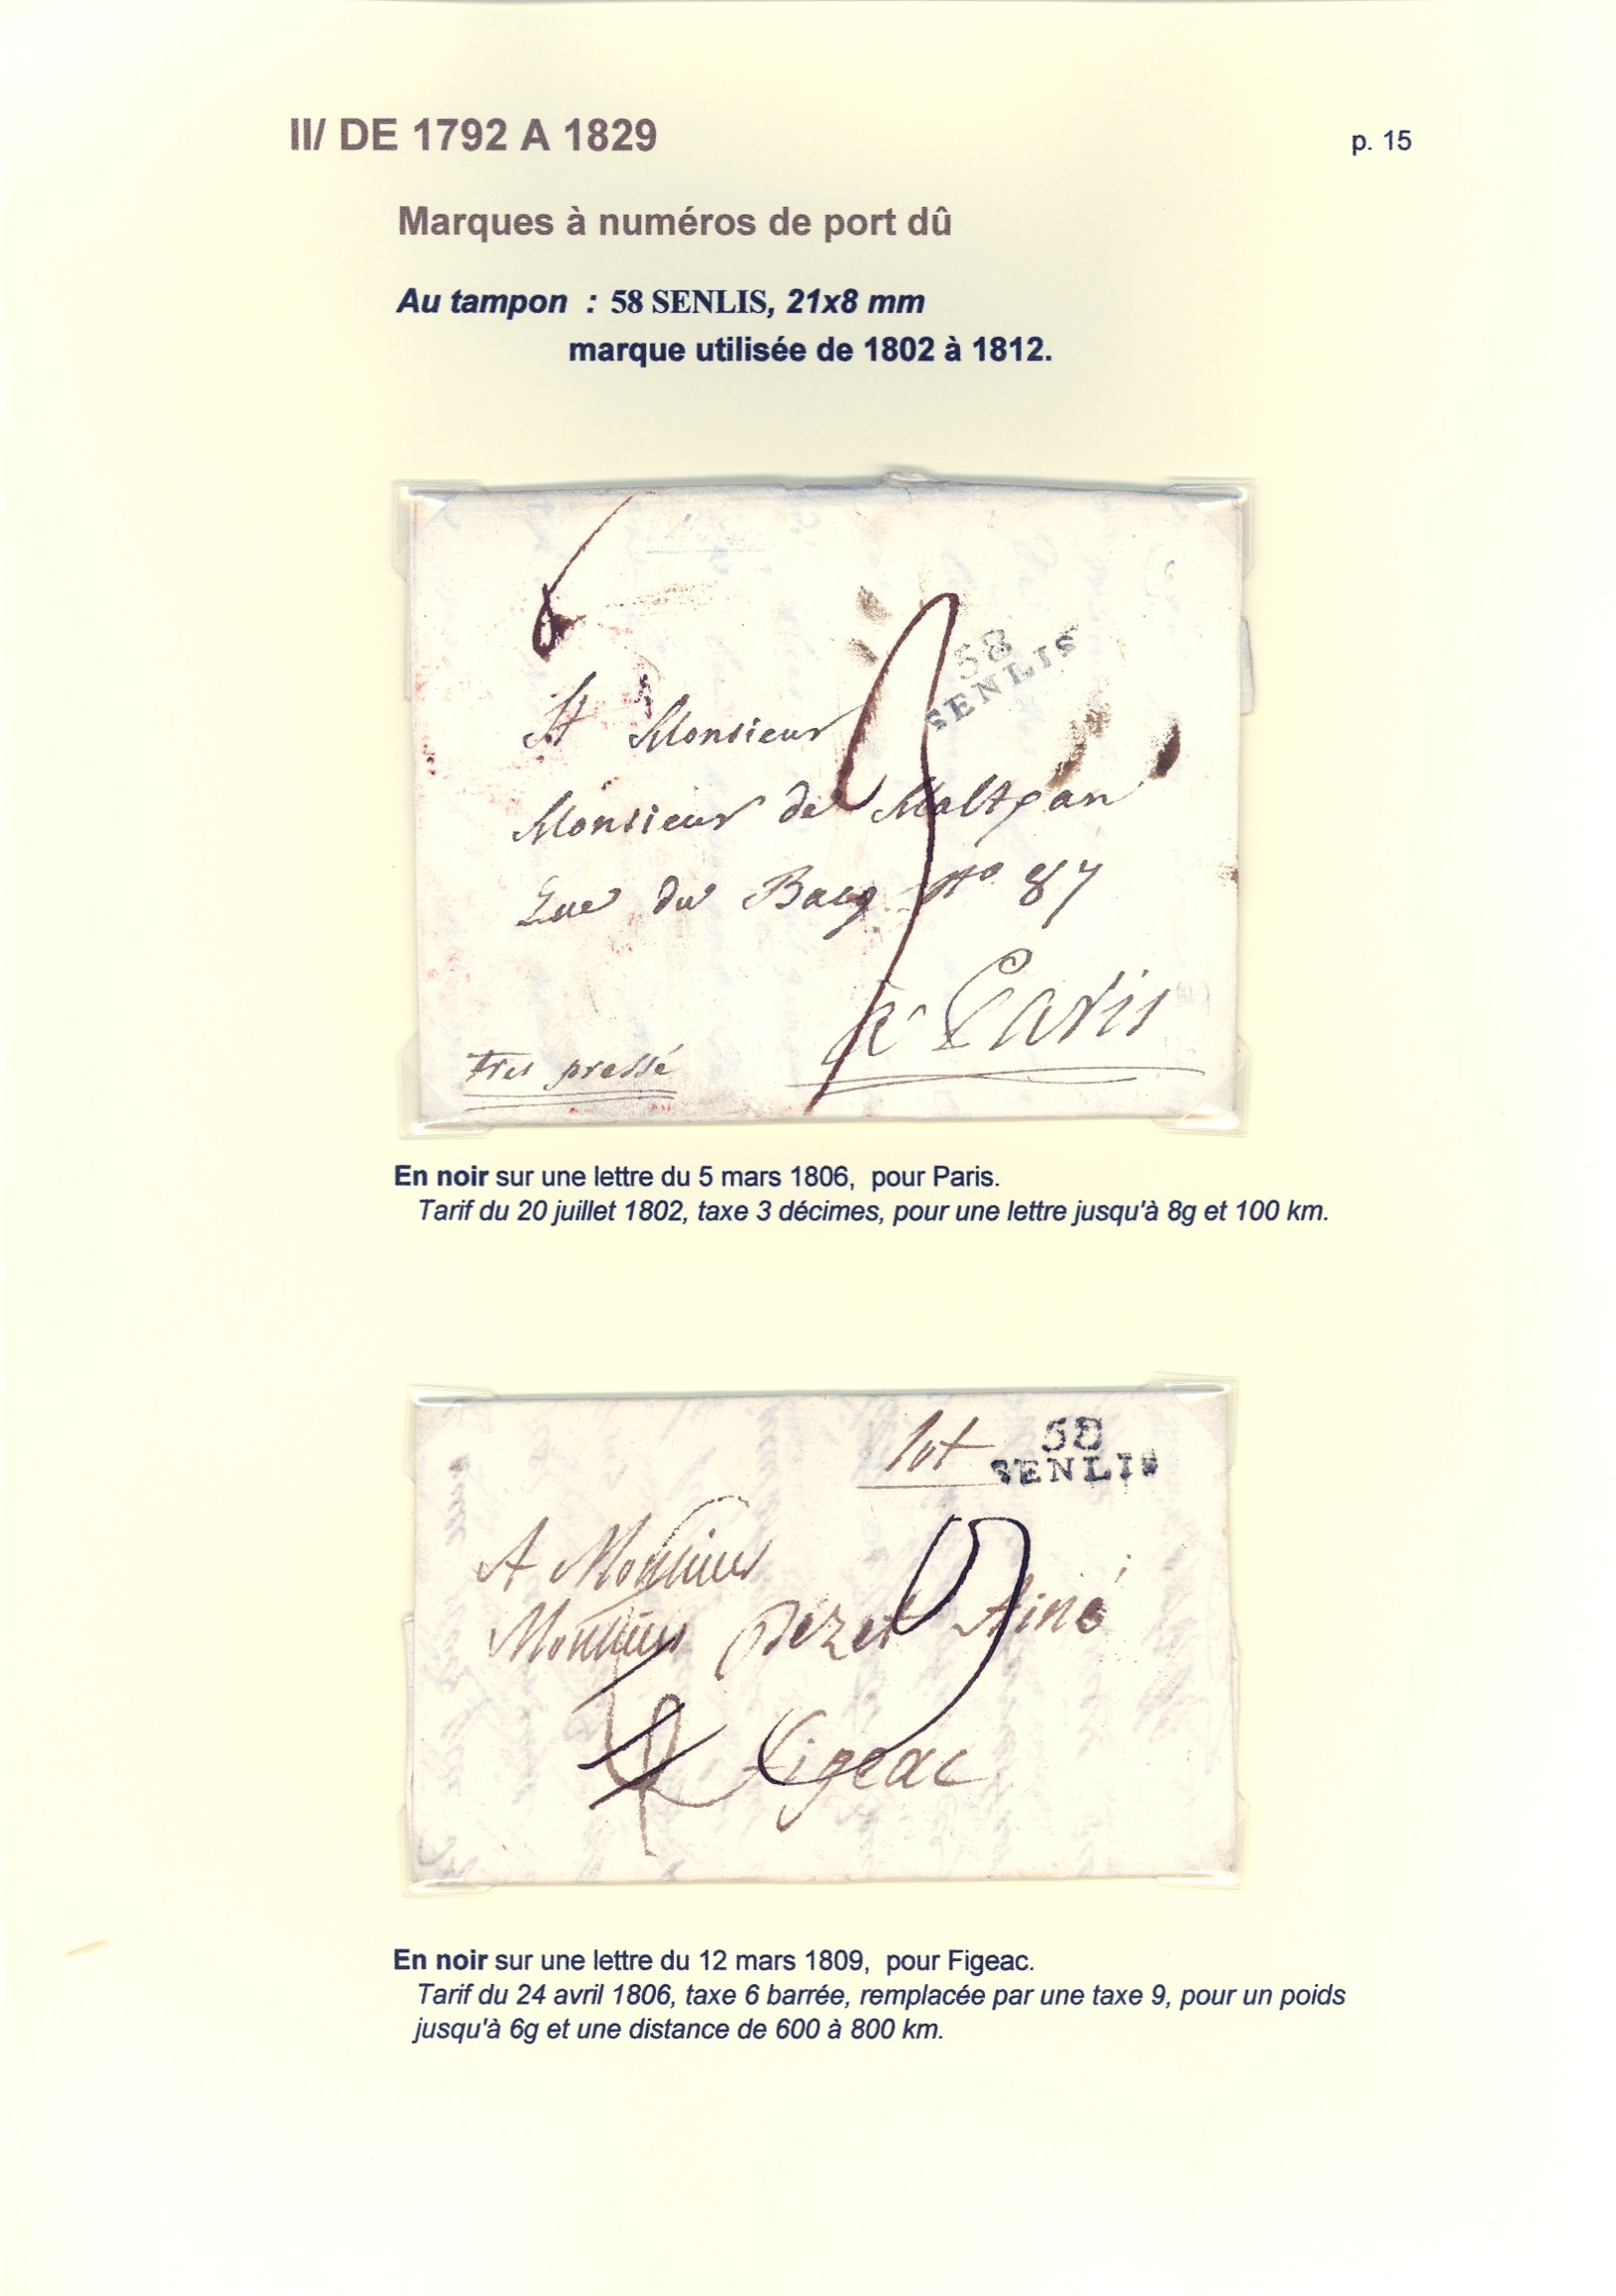 II/ DE 1792 A 1829
p. 15
Marques à numéros de port dû
Au tampon : 58 SENLIS, 21x8 mm
marque utilisée de 1802 à 1812.
6
58
SENLIS
3
A Monsieur
Monsieur de Maltzan
Rue du Bacq No 87
a Paris
Tres pressé
En noir sur une lettre du 5 mars 1806, pour Paris.
Tarif du 20 juillet 1802, taxe 3 décimes, pour une lettre jusqu'à 8g et 100 km.
lot
58
SENLIS
9
A Monsieur
Monsieur Dézet Ainé
6
A Figeac
En noir sur une lettre du 12 mars 1809, pour Figeac.
Tarif du 24 avril 1806, taxe 6 barrée, remplacée par une taxe 9, pour un poids
jusqu'à 6g et une distance de 600 à 800 km.